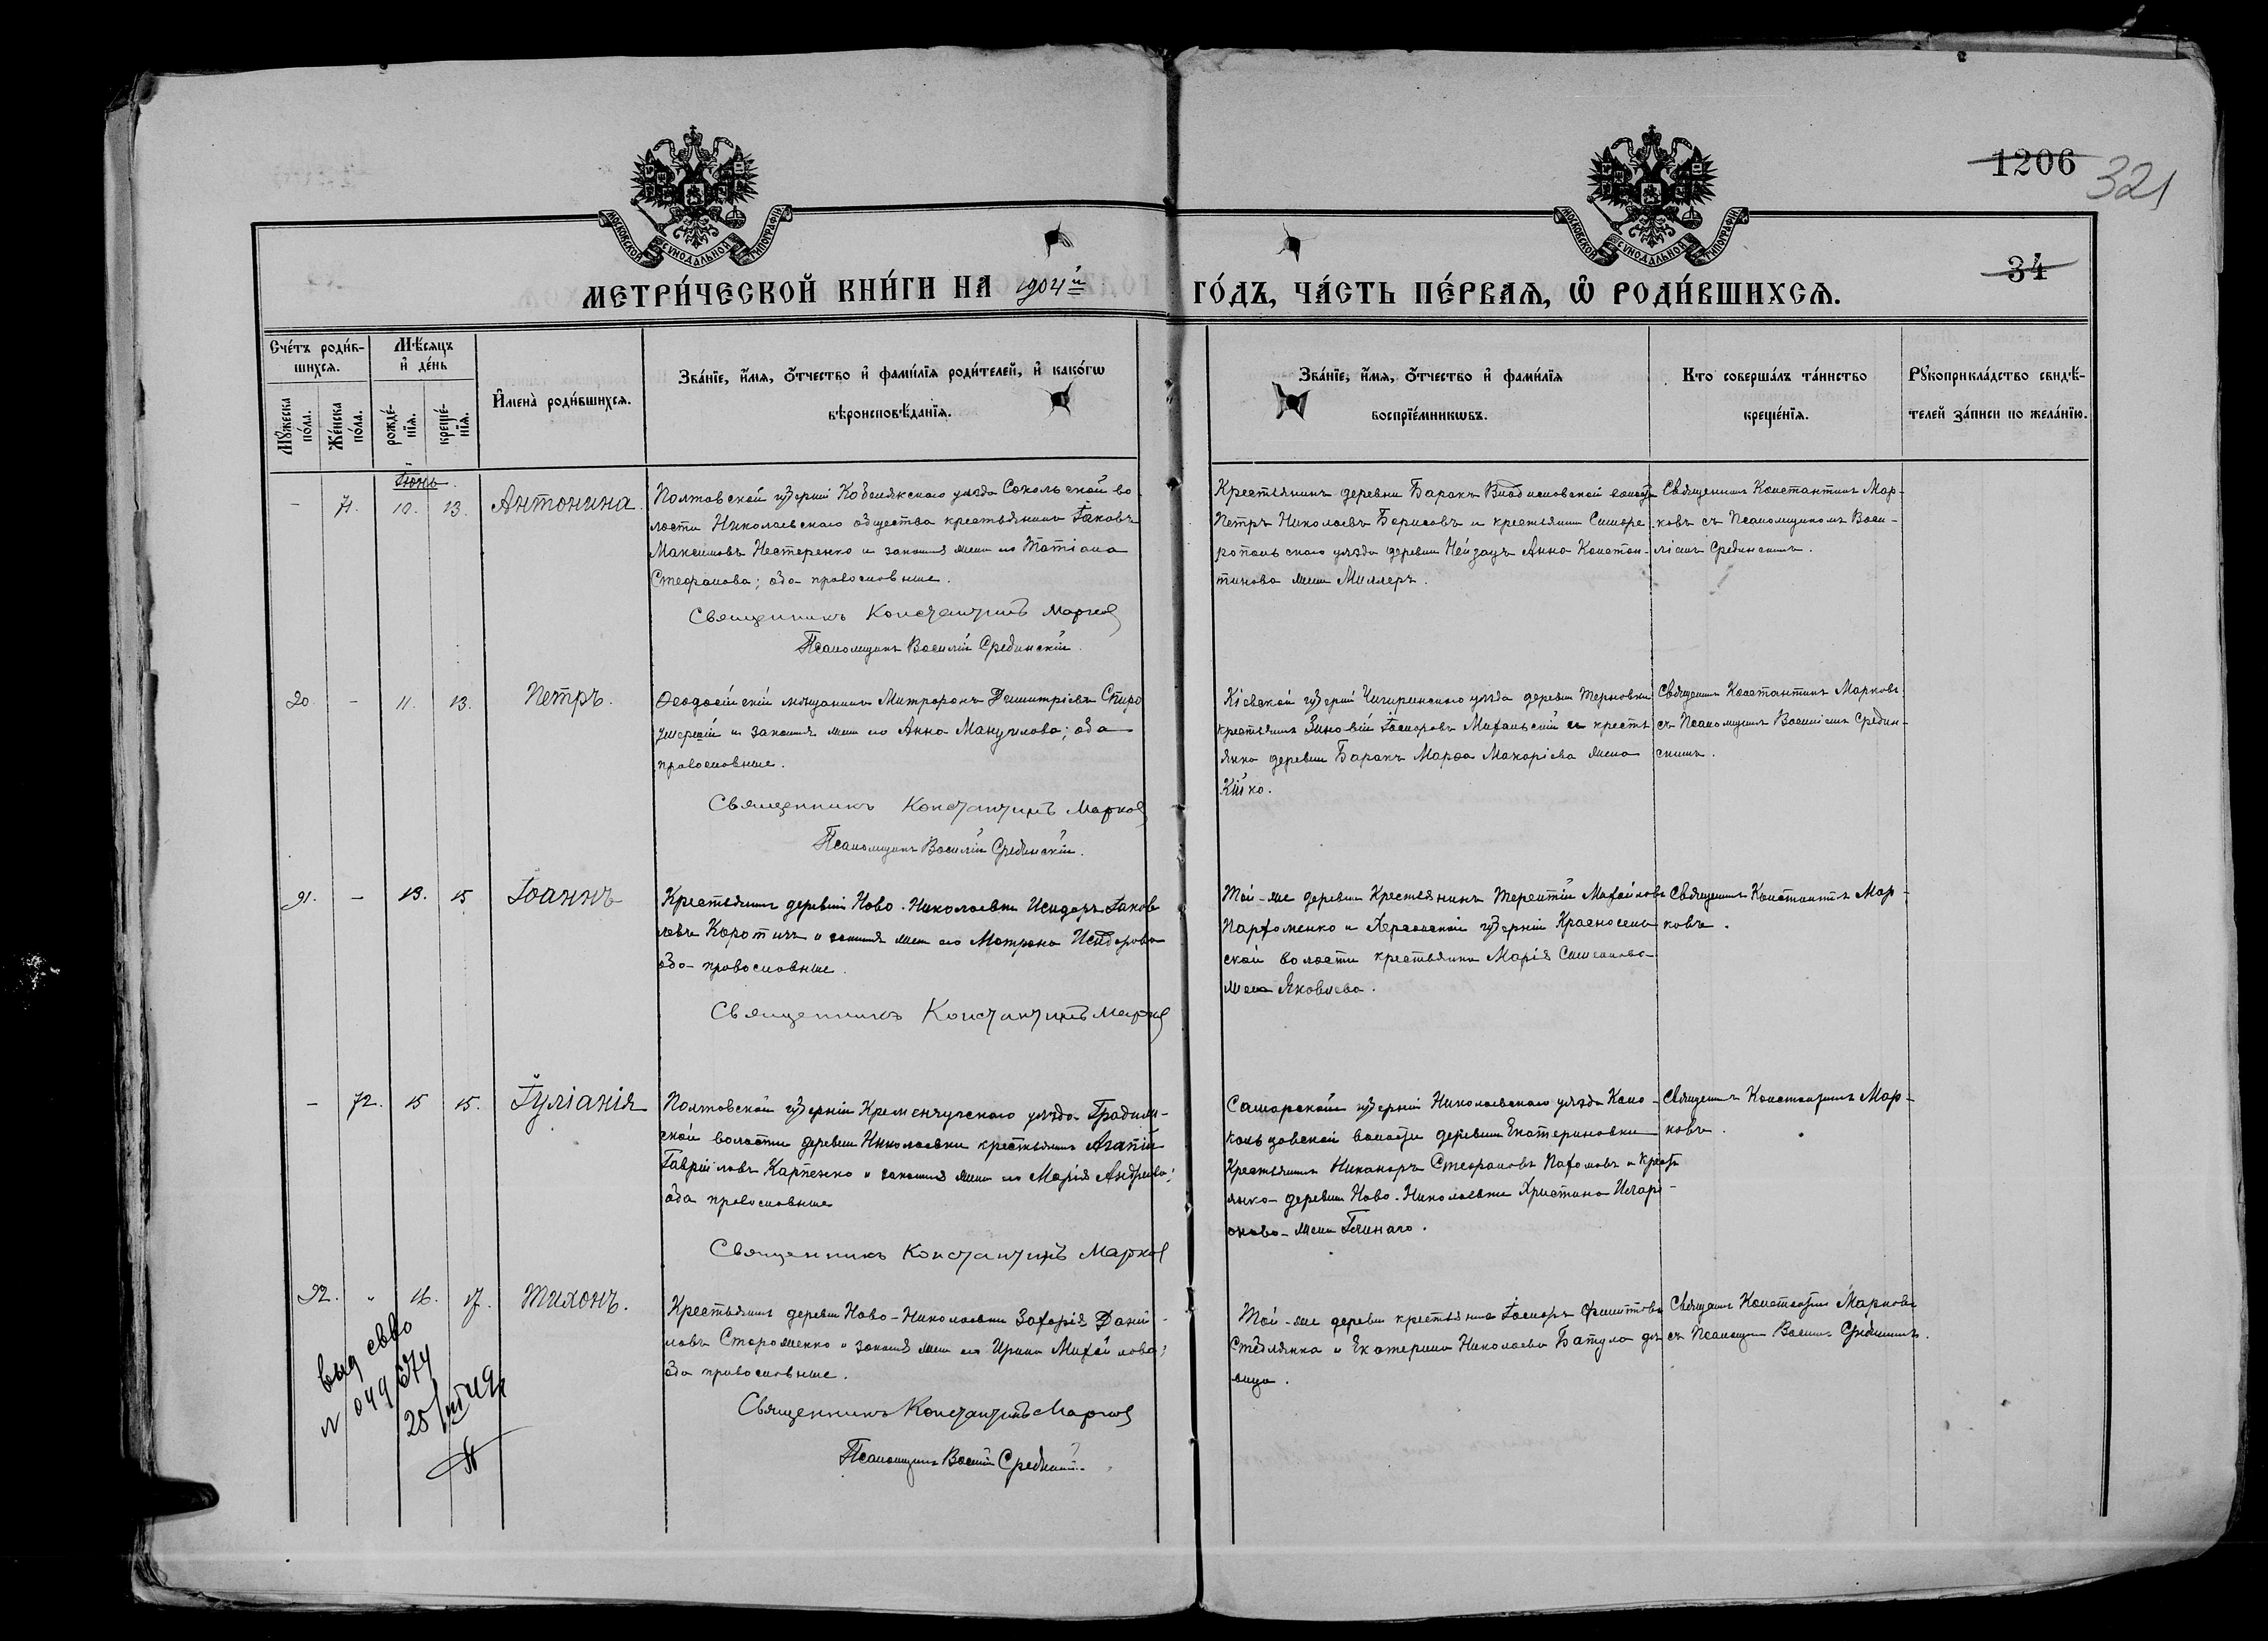 1206
321
34
МОСКОВСКОЙ СѴНОДАЛЬНОЙ ТИПОГРАФІИ
МОСКОВСКОЙ СѴНОДАЛЬНОЙ ТИПОГРАФІИ
МЕТРИ́ЧЕСКОЙ КНИ́ГИ НА 1904й ГО́ДЪ, ЧА́СТЬ ПЕ́РВАЯ, Ѡ РОДИ́ВШИХСЯ.
Сче́тъ роди́в-
шихся.
Му́жеска по́ла.
Же́нска по́ла.
Мѣ́сяцъ
и҆ де́нь
рожде́-
нїя.
креще́-
нїя.
И҆мена̀ роди́вшихся.
Зва́нїе, и҆́мя, ѻ҆́тчество и҆ фами́лїя роди́телей, и҆ како́гѡ
вѣроисповѣ́данїя.
Зва́нїе, и҆́мя, ѻ҆́тчество и҆ фами́лїя
воспрїе́мникѡвъ.
Кто соверша́лъ та́инство
креще́нїя.
Рꙋкоприкла́дство свидѣ́-
телей за́писи по жела́нїю.
Іюнь.
- 71. 10. 13. Антонина.
Полтавской губерніи Кобелякскаго уѣзда Сокольской во
лости Николаевскаго общества крестьянинъ Іаковъ
Максимовъ Нестеренко и законная жена его Татіана
Стефанова; оба православные.
Священникъ Константинъ Марков
Псаломщикъ Василій Срединскій.
Крестьянинъ деревни Баракъ Владиславской волости
Петръ Николаевъ Борисовъ и крестьянки Симфе
ропольскаго уѣзда деревни Нейзацъ Анна Констан-
тинова жена Миллеръ.
Священникъ Константинъ Мар-
ковъ съ Псаломщикомъ Васи-
ліемъ Срединскимъ.
20. - 11. 13. Петръ.
Ѳеодосійскій мѣщанинъ Митрофанъ Димитріевъ Спиро
и законная жена его Анна Мануилова; оба
православные.
Священникъ Константинъ Марков
Псаломщикъ Василій Срединскій.
Кіевской губерніи Чигиринскаго уѣзда деревни Терновки
крестьянинъ Зиновій Іосифовъ и кресть
янка деревни Баракъ Марѳа Макаріева жена
Кійко.
Священникъ Константинъ Марковъ
съ Псаломщикомъ Василіемъ Средин-
скимъ.
91. - 13. 15 Іоаннъ
Крестьянинъ деревни Ново-Николаевки Исидоръ Іаков
левъ Коротичъ и законная жена его Матрона Исидорова
оба православные.
Священникъ Константинъ Марков
Той-же деревни Крестьянинъ Терентій Михайловъ
Пархоменко и Херсонской губерніи Красносель
ской волости крестьянка Марія Симеонова
жена Яковлева.
Священникъ Константинъ Мар-
ковъ.
- 72. 15 15. Іуліанія
Полтавской губерніи Кременчугскаго уѣзда Градиж-
ской волости деревни Николаевки крестьянинъ Агапій
Гавріиловъ Карпенко и законная жена его Марія Андреева;
оба православные
Священникъ Константинъ Марков
Самарской губерніи Николаевскаго уѣзда
волости деревни Екатериновки
Крестьянинъ Никаноръ Стефановъ Пахомовъ и кресть
янка деревни Ново-Николаевки Христина Иларі-
онова жена Глинаго.
Священникъ Константинъ Мар-
ковъ.
92. " 16. 17. Тихонъ.
Крестьянинъ деревни Ново-Николаевки Захарія Дані-
ловъ Староженко и законная жена его Ирина Михайлова;
оба православные.
Священникъ Константинъ Марков
Псаломщикъ Василій Срединскій
Той-же деревни крестьянинъ Іосифъ Филиповъ
Стеблянка и Екатерина Николаева Батула дѣ
вица.
Священникъ Константинъ Марковъ
съ Псаломщикомъ Василіемъ Срединскимъ.
выд св-во
N 049674